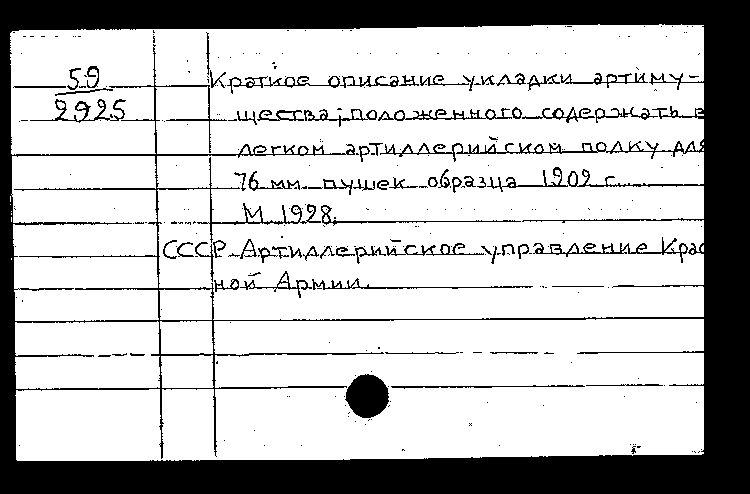 59
2925
Краткое описание укладки артиму-
щества, положенного содержать в
легком артиллерийском полку для
76 мм. пушек образца 1902 г.
М. 1928.
СССР. Артиллерийское управление Крас
ной Армии.